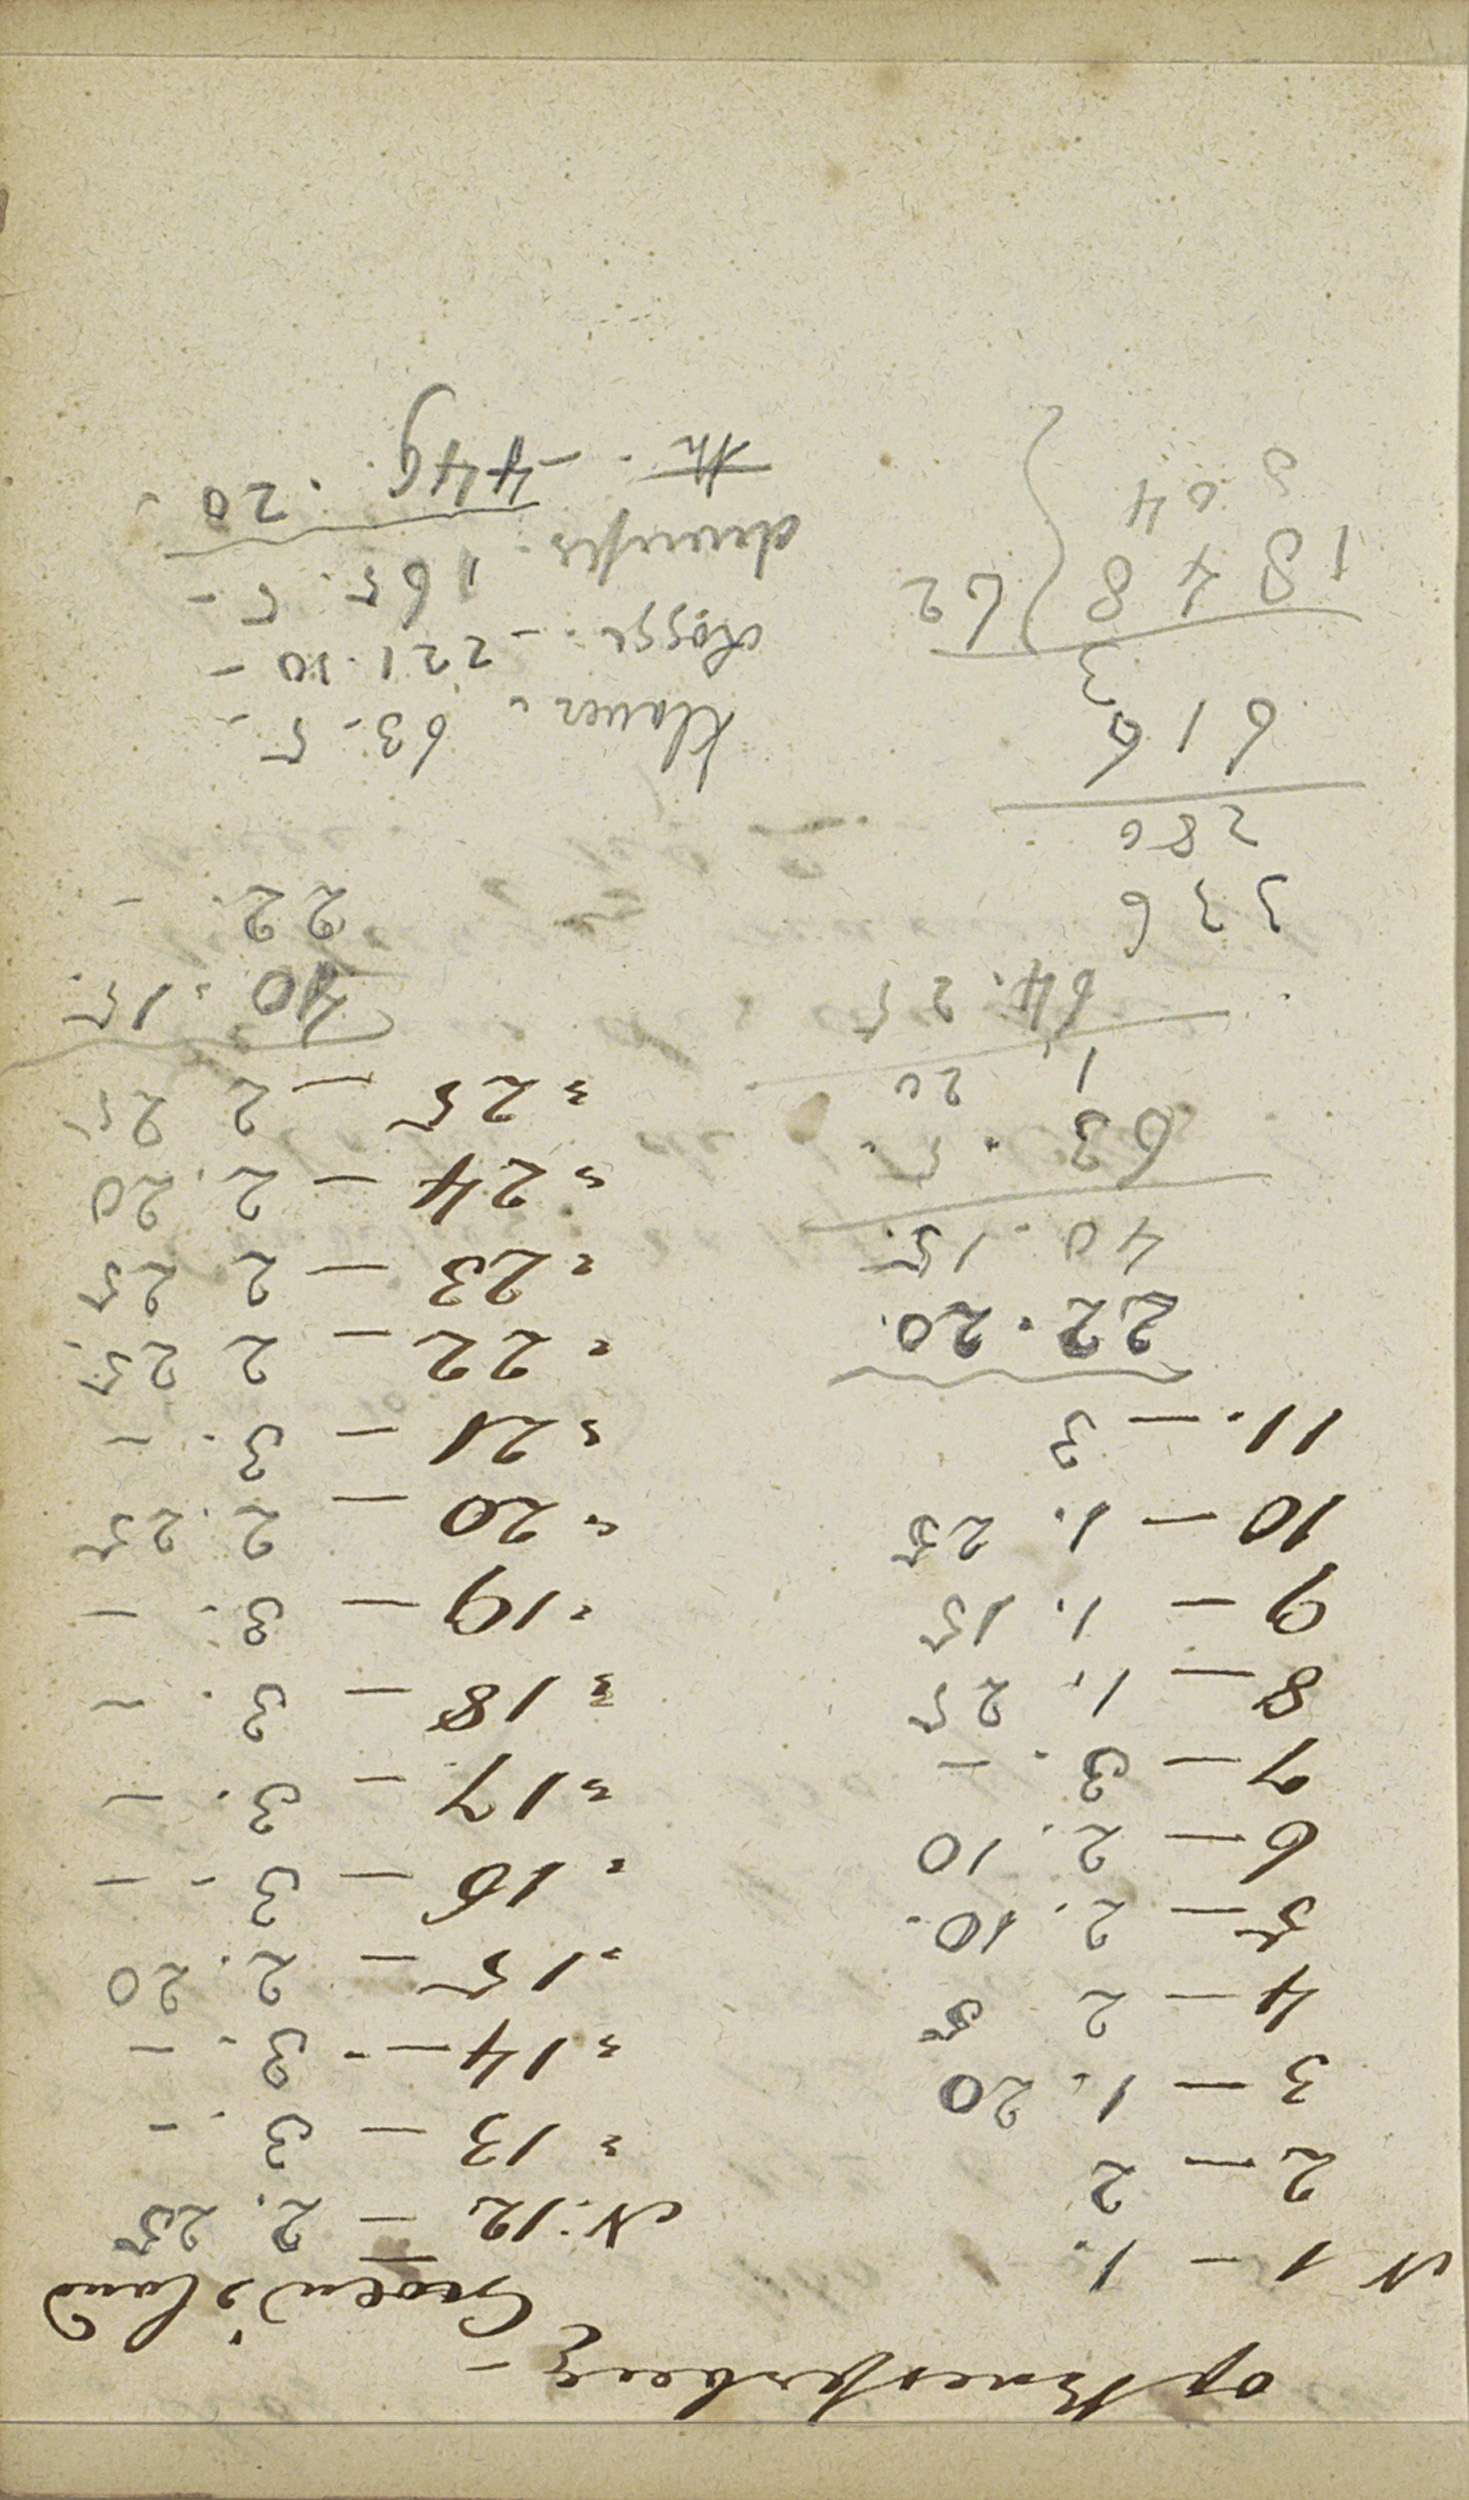 op
Groen's land
N 1 — 1.
2 — 2
3 — 1. 20
4 — 2 5
5 — 2. 10.
6 — 2. 10
7 — 3. —
8 — 1. 25
9 — 1. 15
10 — 1. 25
11. — 3
22.20.
40.15.
63.5.
1 20
64.25
336
280
616
3
1848 62
N. 12 — 2. 25
" 13 — 3. —
" 14 — 3. —
" 15 — 2. 20
" 16 — 3 - —
" 17 — 3. —
" 18 — 3. —
" 19 — 3. —
" 20 — 2. 25
" 21 — 3. —
" 22 — 2 25.
" 23 — 2 25
" 24 — 2. 20
" 25 — 2 25
40.15.
22. -
Klaver. 63.5 -
Rogge. - 221.10 -
165.5 -
- 449.20.